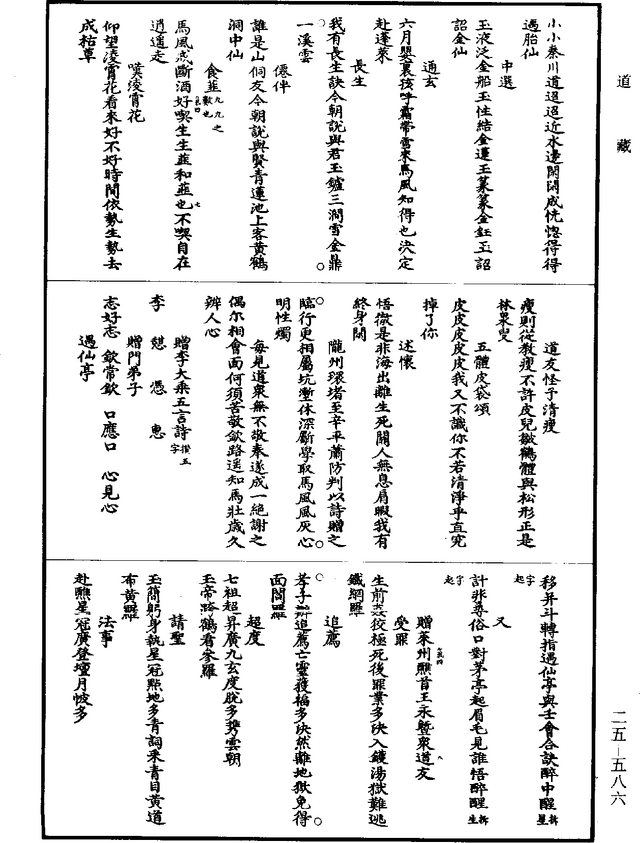 道藏
小小秦川道迢迢近水邊閑閑成恍惚得得
遇胎仙
中選
玉液泛金船玉性結金蓮玉篆篆金鈺玉詔
詔金仙
通玄
六月嬰裹孩呼霜帶雪來馬風知得也決定
赴蓬萊
長生
我有長生訣今朝說與君玉鑪三澗雪金鼎
一溪雲
僊伴
誰是山侗友今朝說與賢青蓮池上客黃鶴
洞中仙
食韮
馬風戒斷酒好喫生生韮和韮也不喫自在
逍遙走
嘆淩霄花
仰望淩霄花看來好不好時間依勢生勢去
成枯草
道友怪予清瘦
瘦則從教瘦不許皮兒皺鶴體與松形正是
林泉叟
五體皮袋頌
皮皮皮皮皮我又不識你不若清淨乎直究
掉了你
述懷
悟徹是非海出離生死關人無息肩暇我有
終身閑
隴州環堵至辛平蕭防判以詩贈之
臨行更相屬坑壍休深斸學取馬風風灰心
明性燭
每見道衆無不敬奉遂成一絕謝之
偶尔相會面何須苦敬欽路遥知馬壯歲久
辨人心
贈李大乘五言詩
李 憇 憑 惠
贈門弟子
志好志 欽常欽 口應口 心見心
遇仙亭
移并斗轉指遇仙亭與壬會合訣醉中醒
又
計非尋俗口對茅亭起眉毛見誰悟醉醒
贈萊州醮首王永暨衆道友
受罪
生前狡極死後罪業多決入鑊湯獄難逃
鐵網羅
追薦
孝子辦追薦亡靈獲福多決然離地獄免得
面閻羅
超度
七祖超昇廣九玄度脫多攜雲朝
玉帝跨鶴看參羅
請聖
玉簡躬身執星冠點地多青詞釆青目黃道
布黃羅
法事
赴醮星冠廣登壇月帔多
二五—五八六